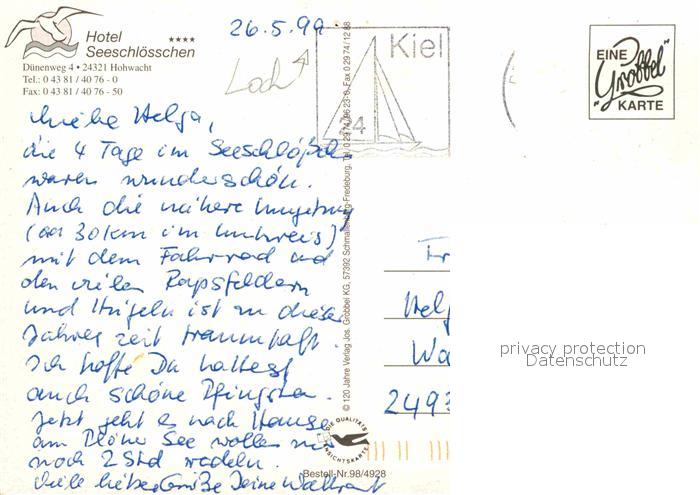 Hotel ****
Seeschlösschen
Dünenweg 4 • 24321 Hohwacht
Tel.: 0 43 81 / 40 76 - 0
Fax: 0 43 81 / 40 76 - 50
26.5.99
Loch
Kiel
24
EINE
"Grobbel"
KARTE
Liebe Helga,
die 4 Tage im Seeschlößch
waren wunderschön.
Auch die nähere Umgebung
(ca 30km im Umkreis)
mit dem Fahrrad und
den vielen Rapsfeldern
und Hügeln ist zu dieser
Jahreszeit traumhaft.
Ich hoffe Du hattest
auch schöne Pfingsten.
Jetzt geht es nach Hause
am Plöner See wollen wir
noch 2 Std radeln.
Viele liebe Grüße Deine Waltraut
© 120 Jahre Verlag Jos. Grobbel KG, 57392 Schmallenberg-Fredeburg, Tel. 0 29 74/96 23-0, Fax 0 29 74/12 88
Fr
Hel
Wa
249
privacy protection
Datenschutz
DIE QUALITÄTS
ANSICHTSKARTE
Bestell-Nr. 98/4928